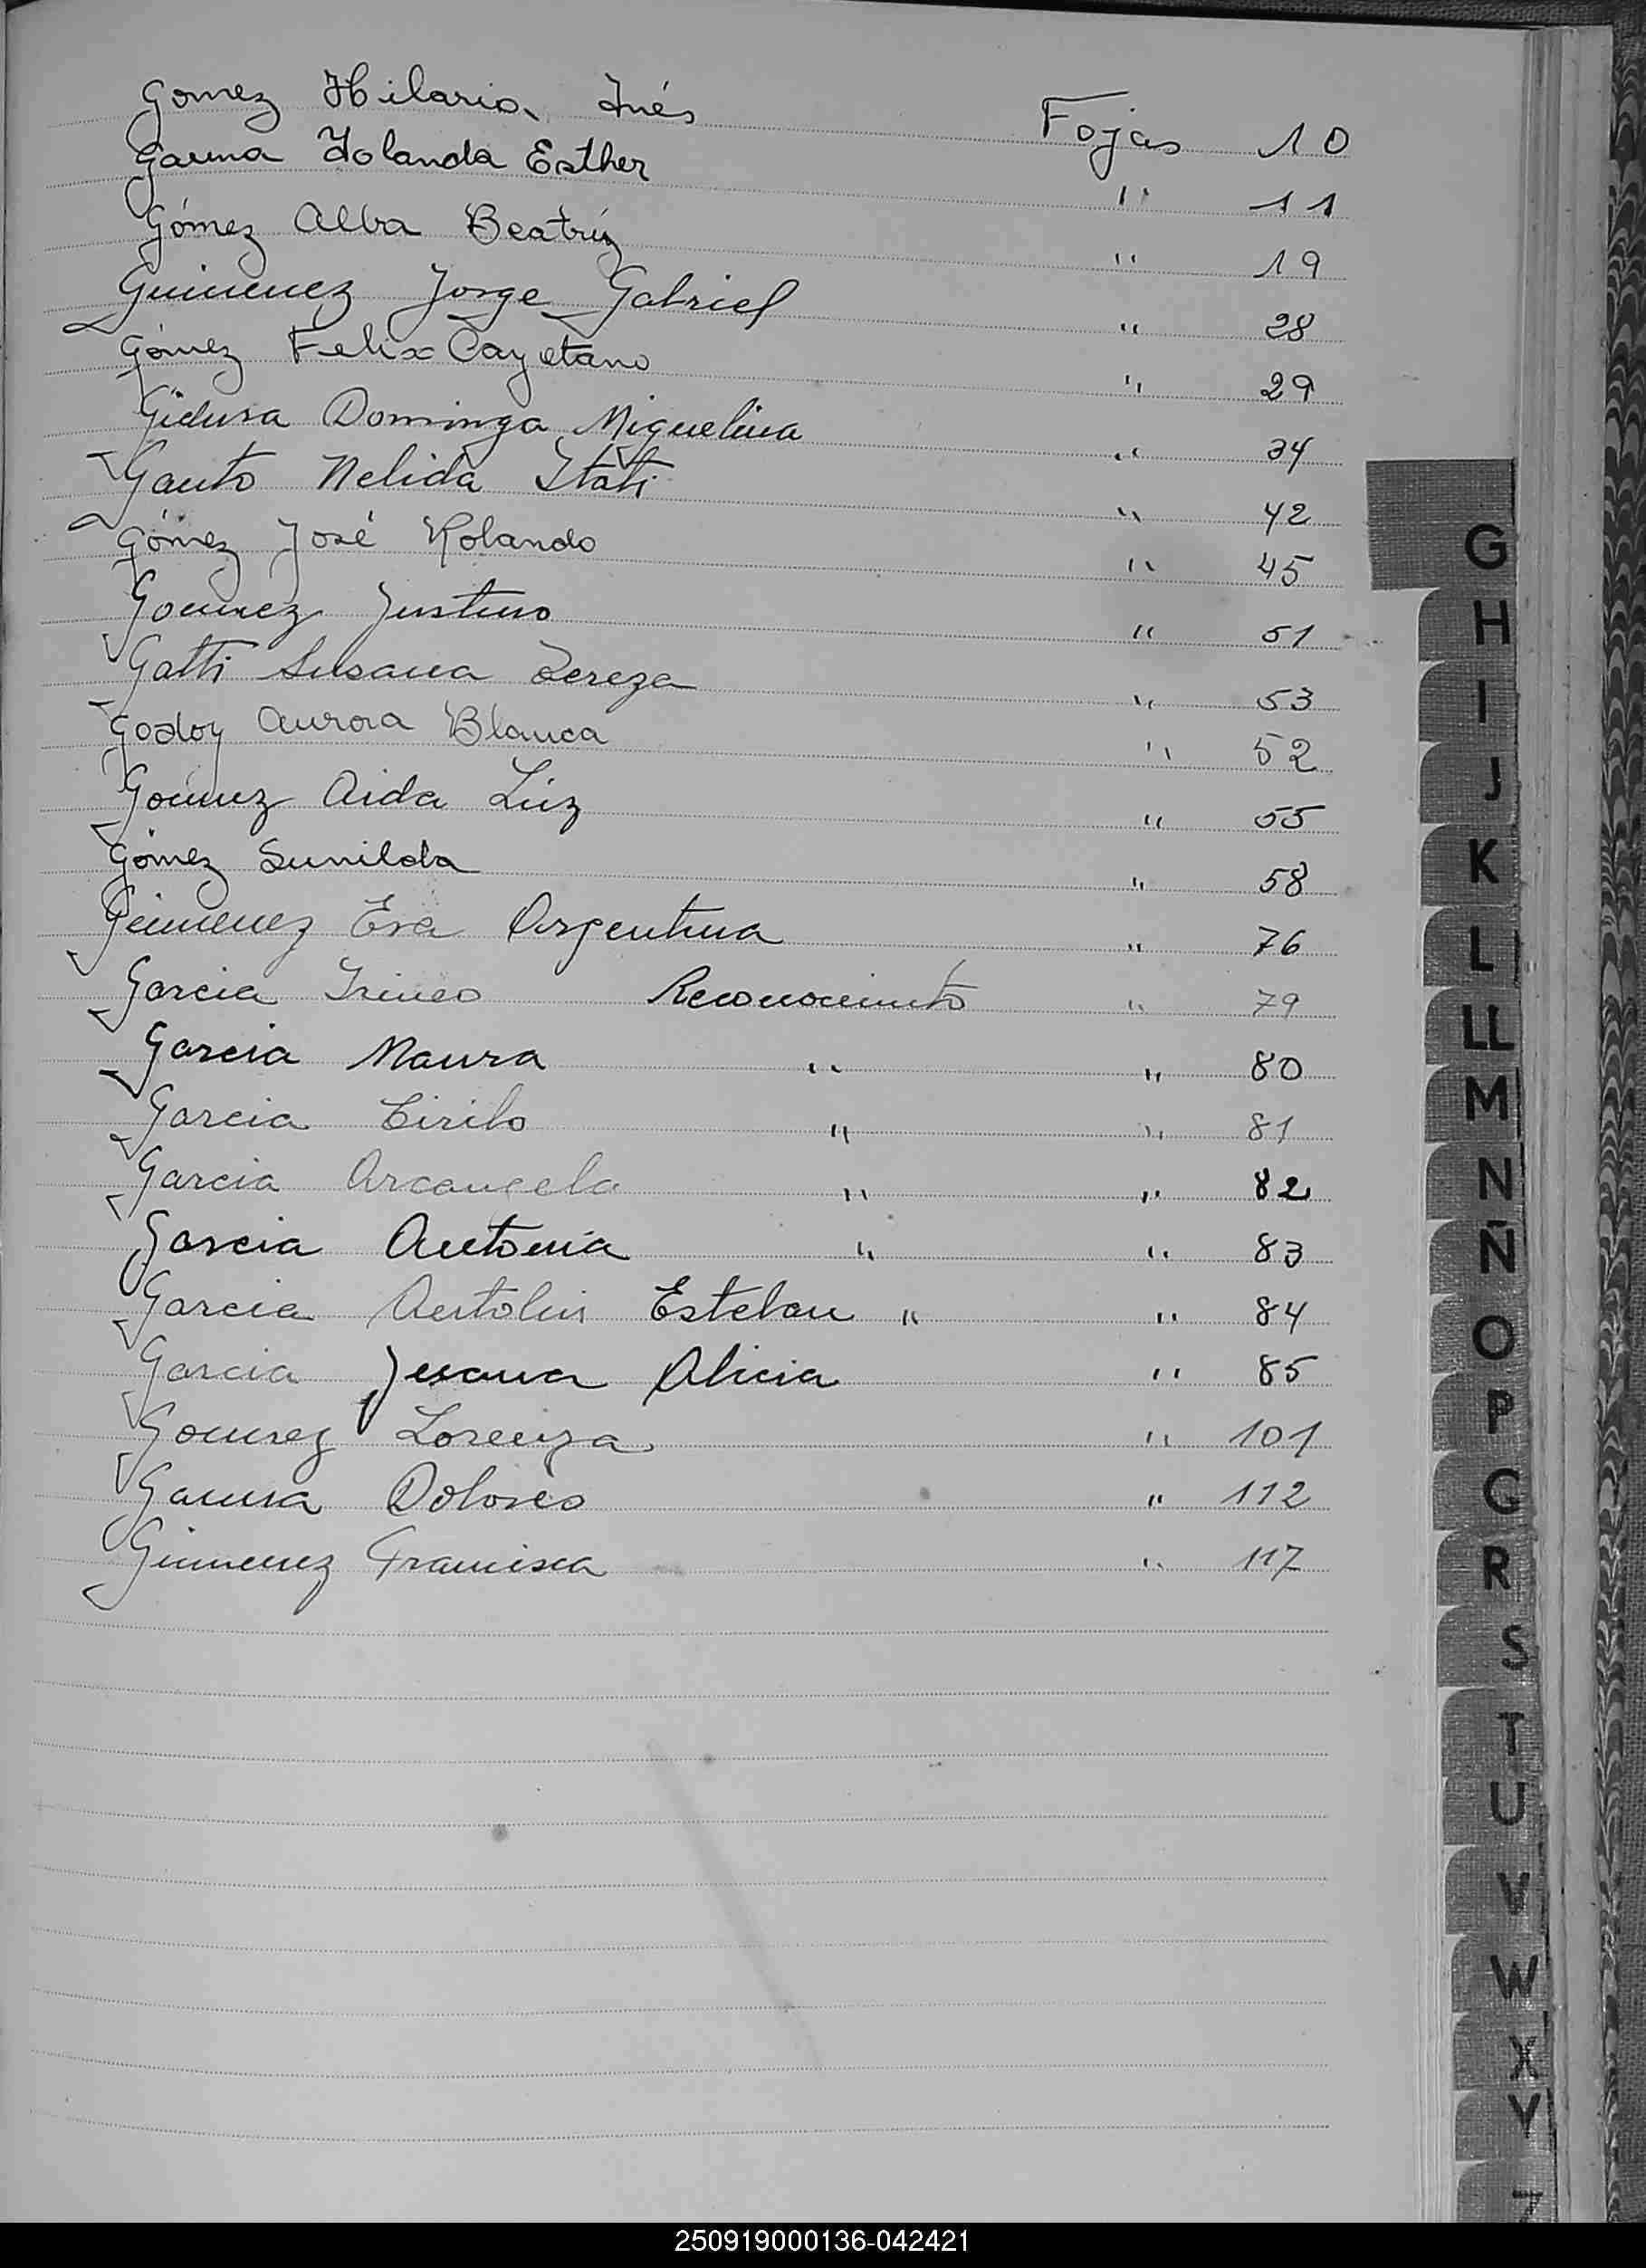 Gomez Hilaria Inés Fojas 10
Gauna Yolanda Esther " 11
Gómez Alba Beatríz " 19
Guimenez Jorge Gabriel " 28
Gómez Felix Cayetano " 29
Dominga Miguelina " 34
Gauto Nelida Itati " 42
Gómez José Rolando " 45
Goumez Justino " 51
Gatti Susana Tereza " 53
Godoy Aurora Blanca " 52
Goumez Aida Luz " 55
Gómez Sunilda " 58
Geimenez Eva Argentina " 76
Garcia Irineo Reconocimiento " 79
Garcia Maura " " 80
Garcia Cirilo " " 81
Garcia Arcangela " " 82
Garcia Antonia " " 83
Garcia Antolin Esteban " " 84
Garcia Juana Alicia " 85
Goumez Lorenza " 101
Gauna Dolores " 112
Gimenez Francisca " 117
G
H
I
J
K
L
LL
M
N
Ñ
O
P
R
S
T
U
V
W
X
Y
Z
250919000136-042421